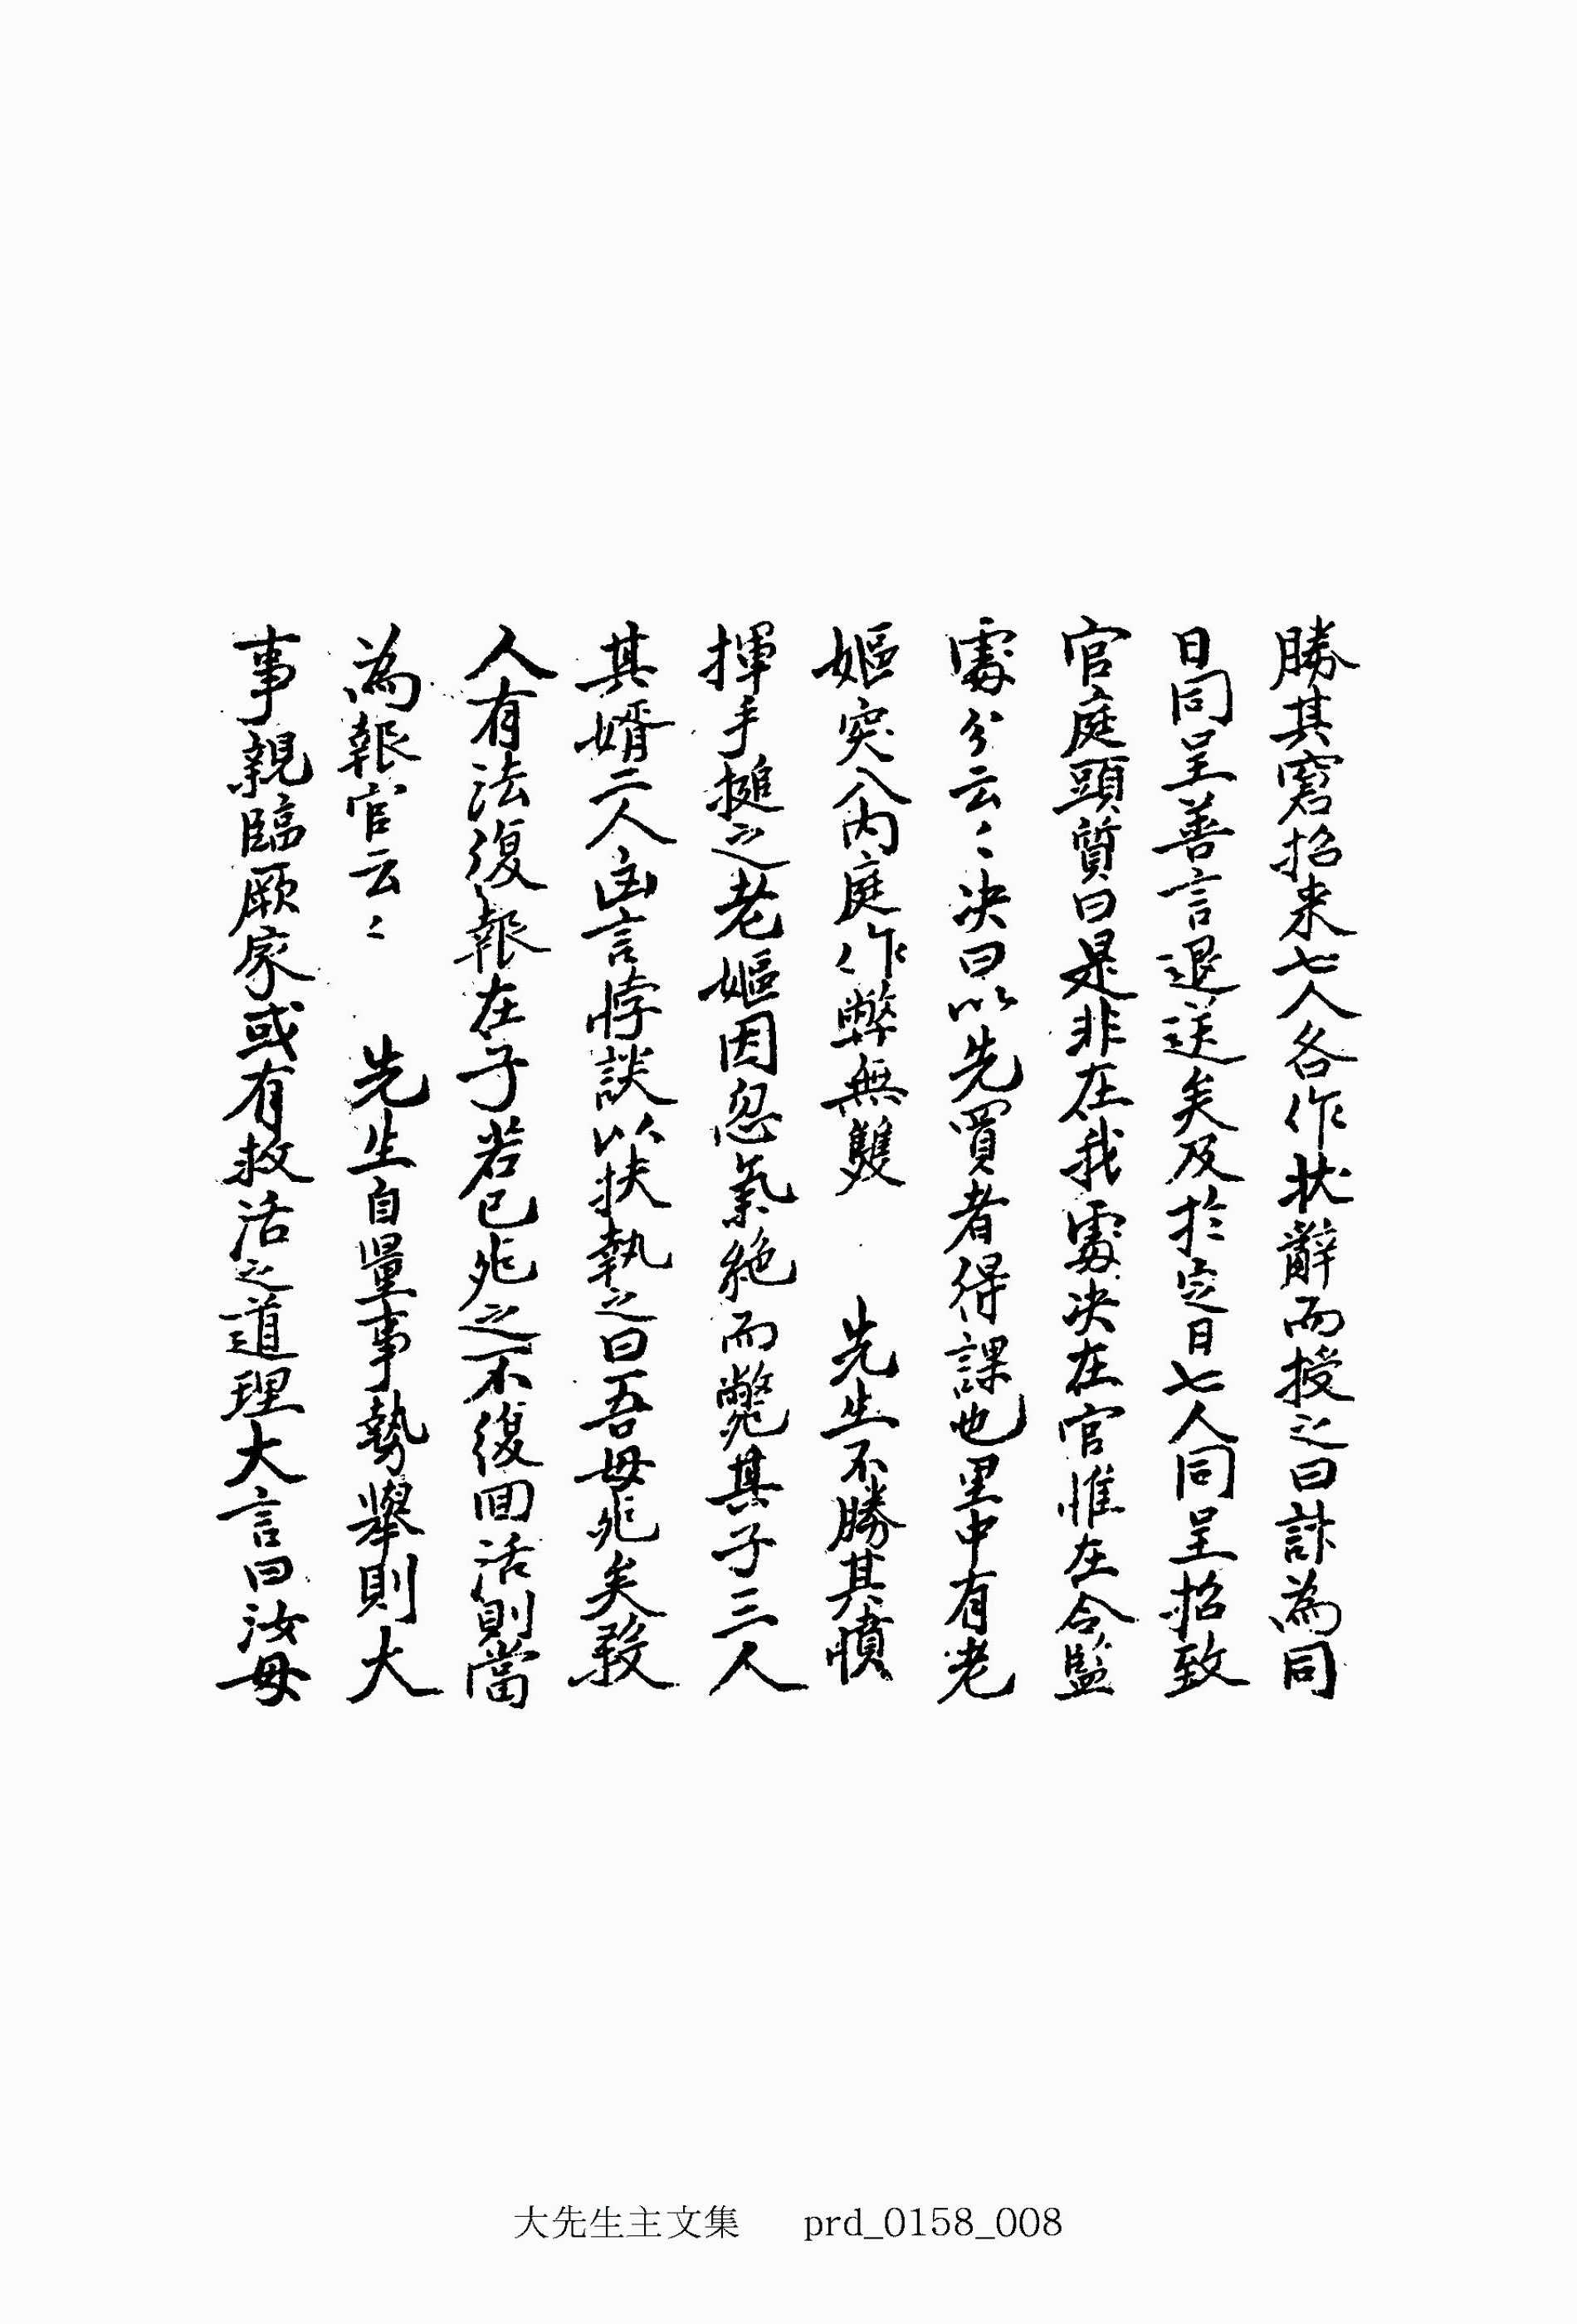 勝其窘招来七人各作状辭而授之曰訃為同
日同呈善言退送矣及於定日七人同呈招致
官庭頭質曰是非在我處決在官惟在令監
處分云〻決曰以先買者得課也里中有老
嫗突入内庭作弊無雙 先生不勝其憤
揮手搥之老嫗因忽氣絶而斃其子三人
其婿二人凶言悖談以扶執之曰吾母死矣殺
人有法復報在子若已死之不復回活則當
為報官云〻 先生自量事勢擧則大
事親臨厥家或有救活之道理大言曰汝母
大先生主文集 prd_0158_008